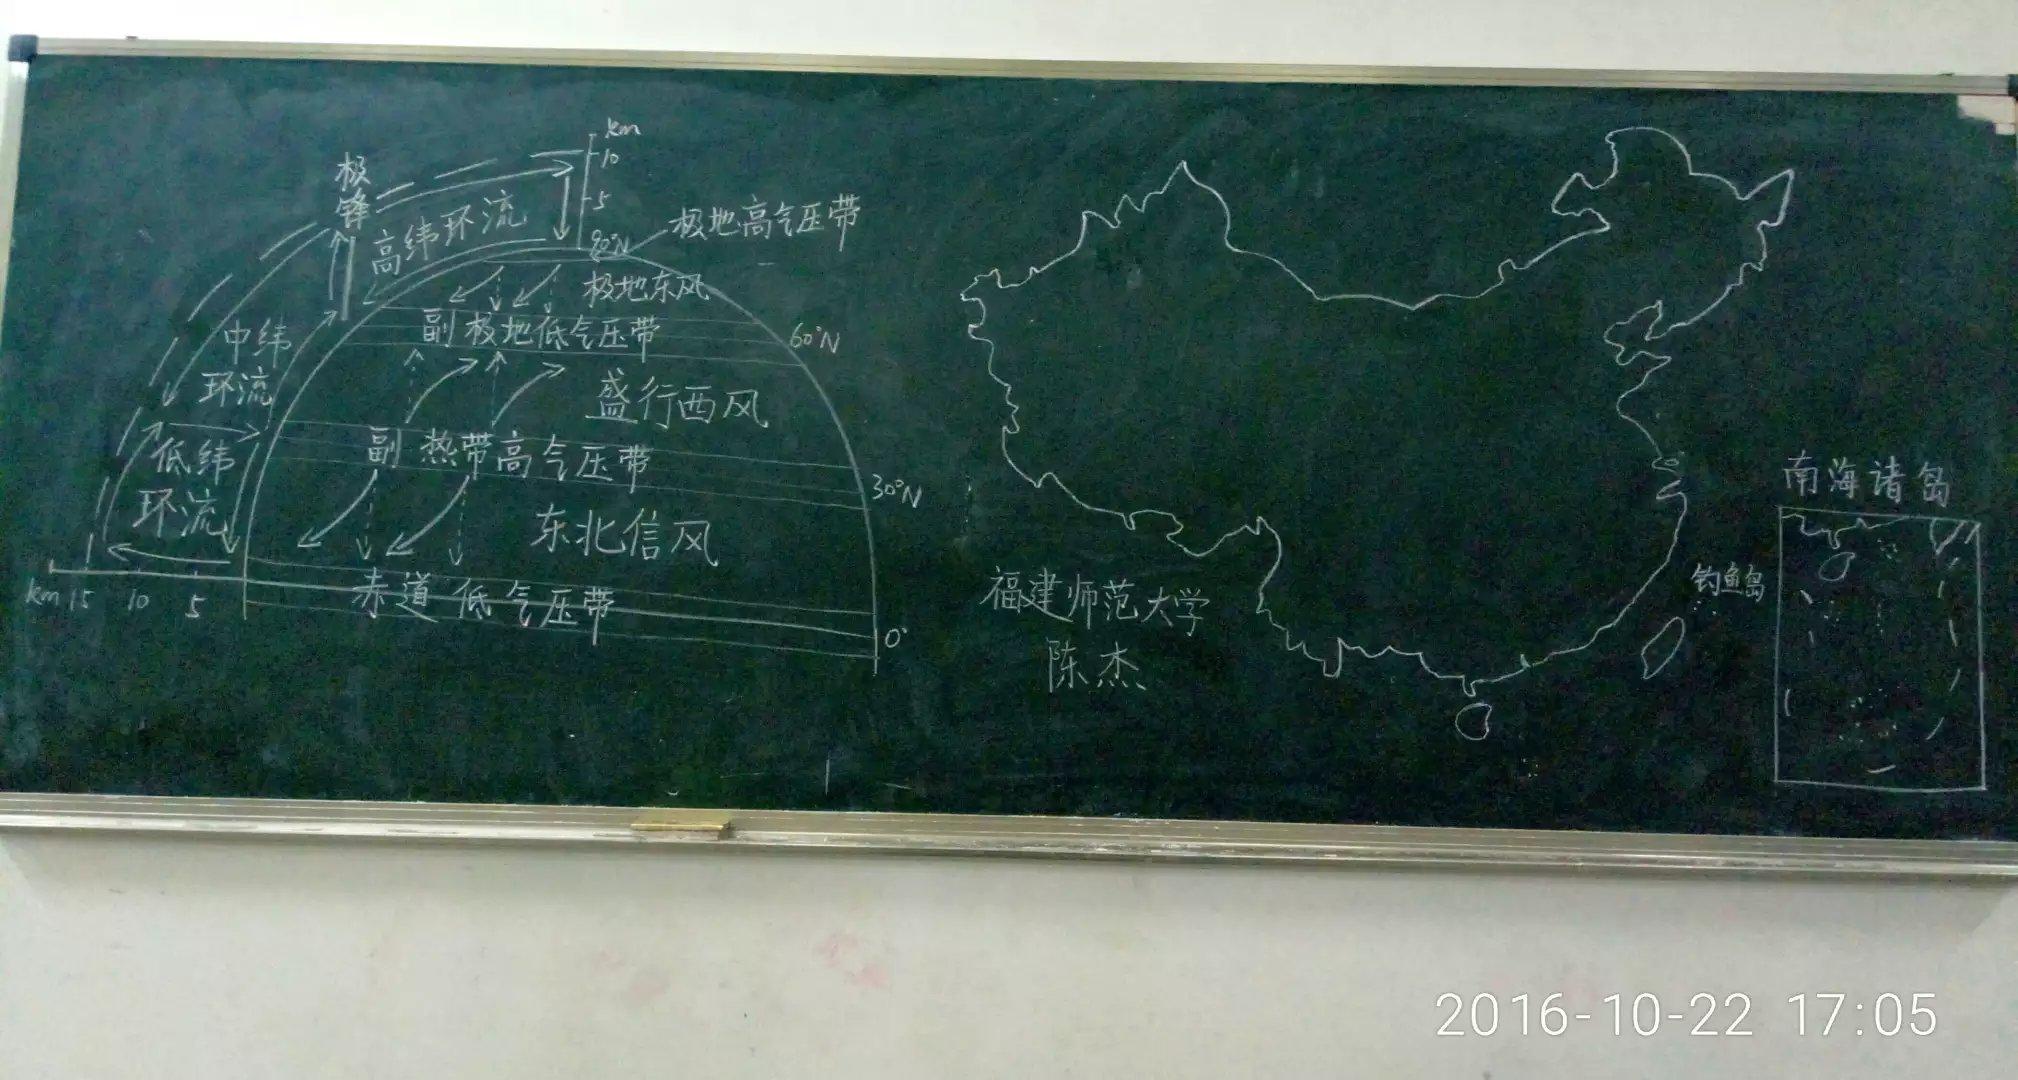 km
10
5
极锋
高纬环流
90°N
极地高气压带
极地东风
副极地低气压带
60°N
中纬
环流
盛行西风
副热带高气压带
30°N
低纬
环流
东北信风
km 15 10 5
赤道低气压带
0°
福建师范大学
陈杰
钓鱼岛
南海诸岛
2016-10-22 17:05